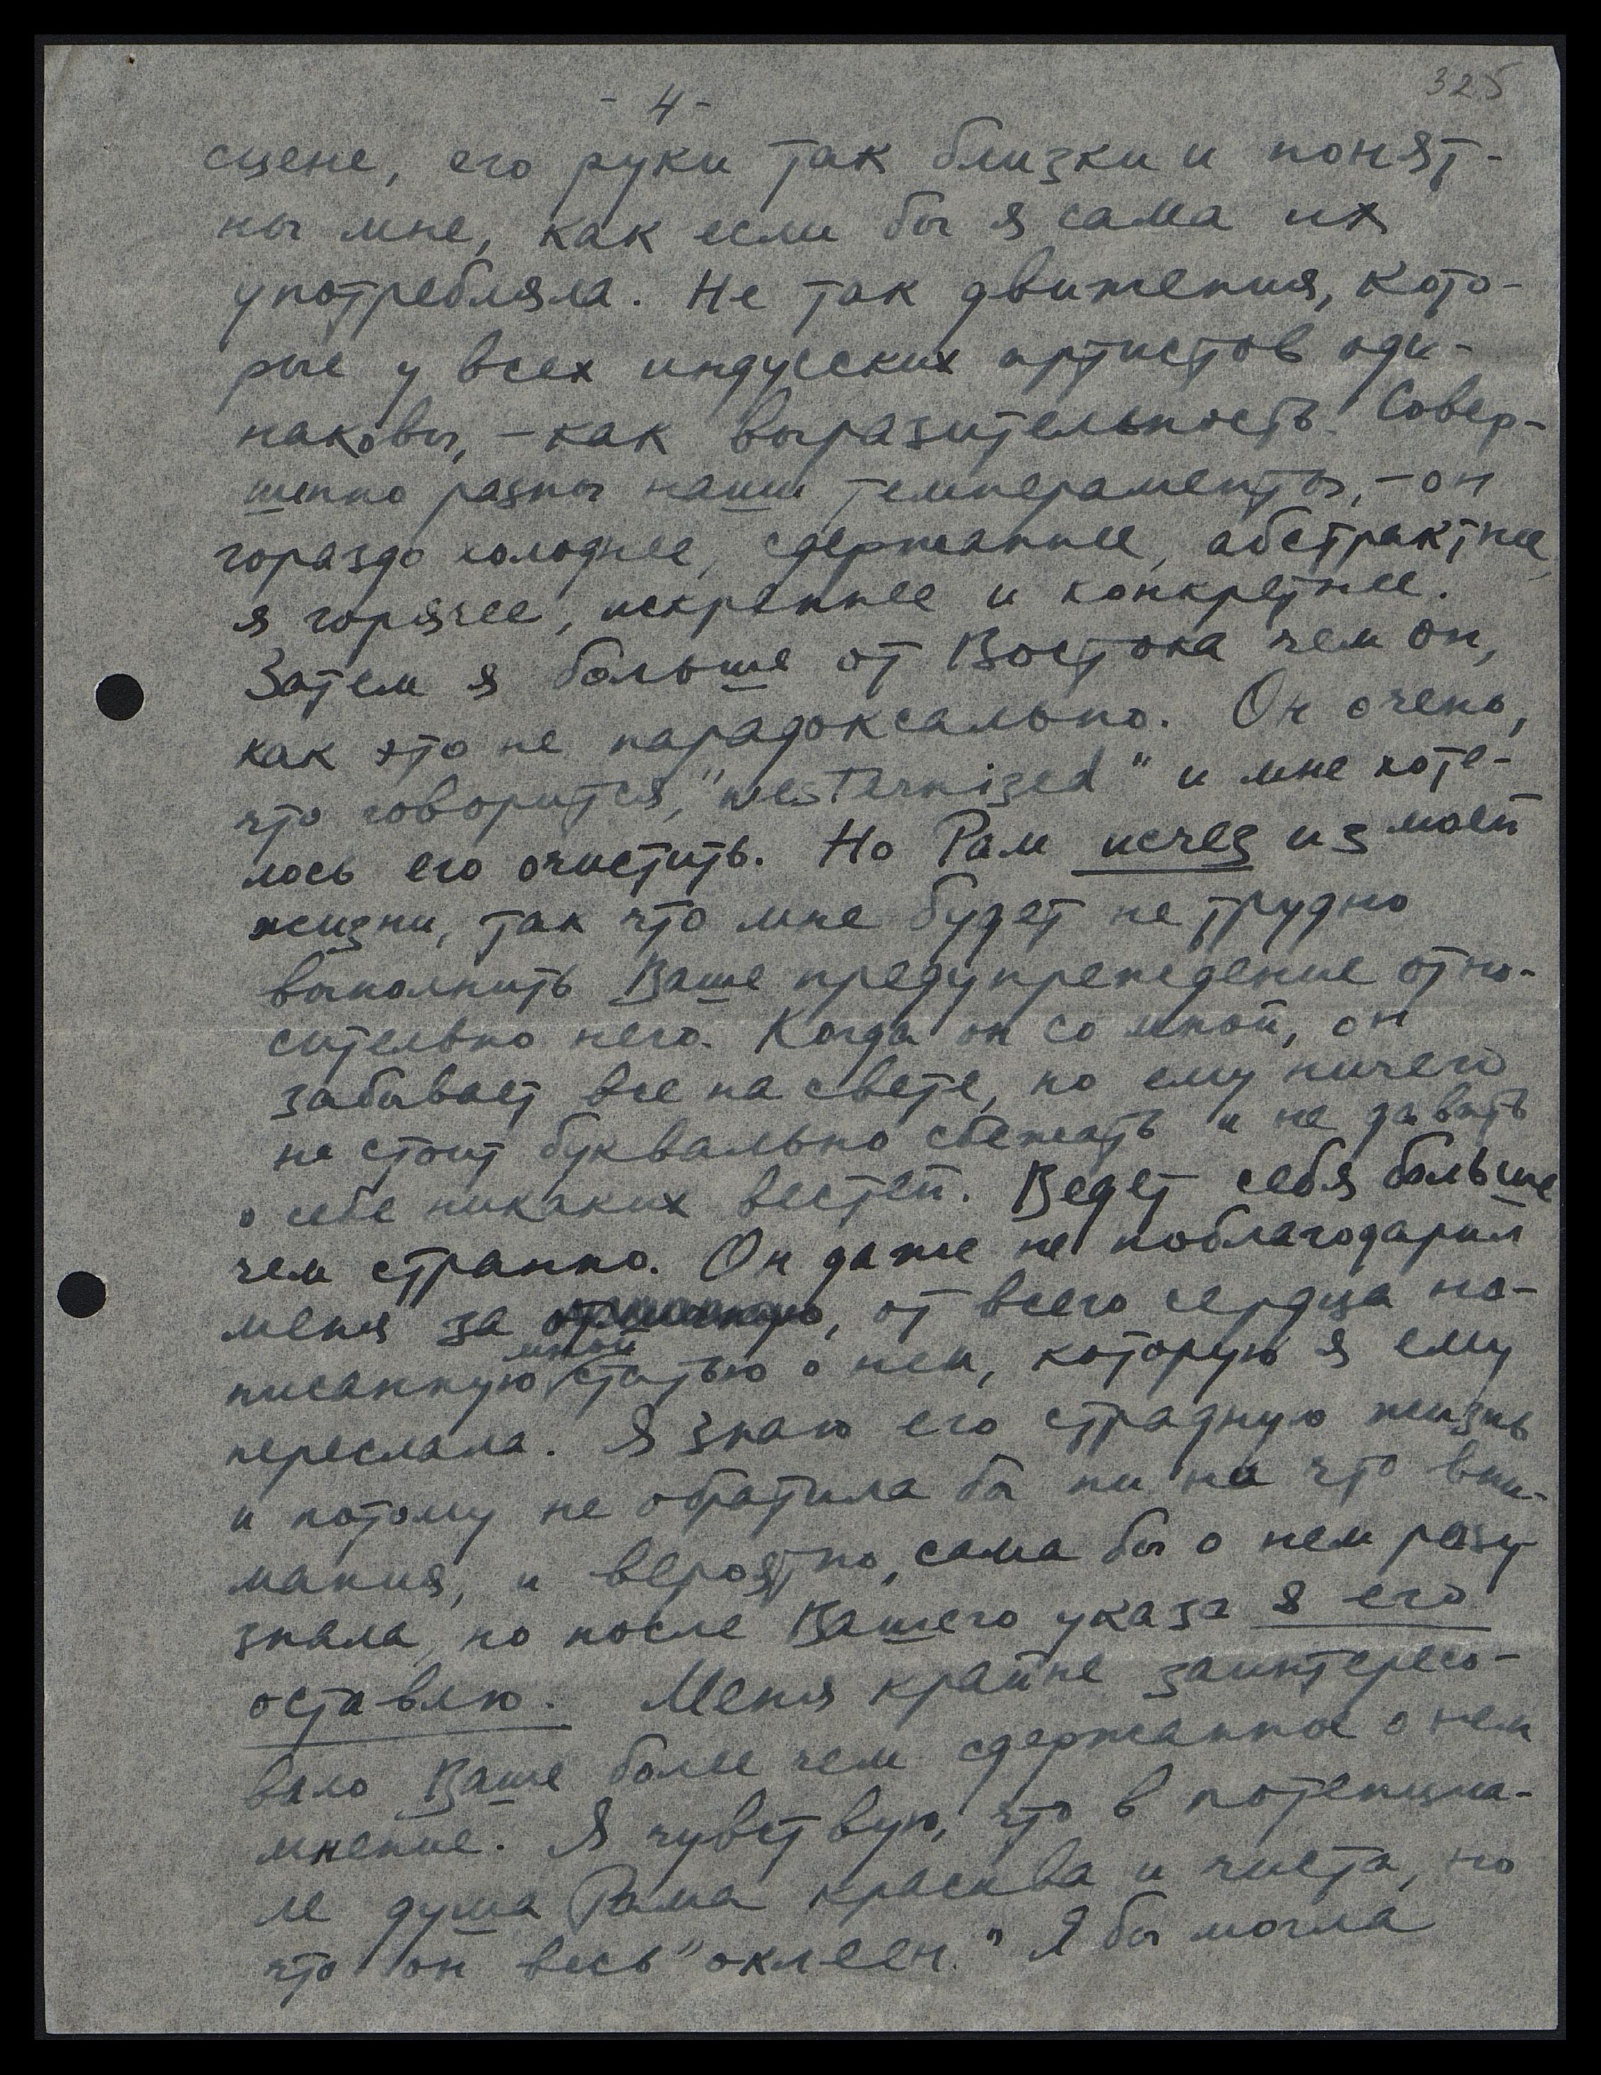 325
- 4 -
сцене, его руки так близки и понят-
ны мне, как если бы я сама их
употребляла. Не так движения, кото-
рые у всех индусских артистов оди-
наковы, – как выразительность. Совер-
шенно разны наши темпераменты, – он
гораздо холоднее, сдержаннее, абстрактнее,
я горячее, искреннее и конкретнее.
Затем я больше от Востока чем он,
как это не парадоксально. Он очень,
что говорится, "westernized" и мне хоте-
лось его очистить. Но Рам исчез из моей
жизни, так что мне будет не трудно
выполнить Ваше предупреждение отно-
сительно него. Когда он со мной, он
забывает все на свете, но ему ничего
не стоит буквально сбежать и не давать
о себе никаких вестей. Ведет себя больше
чем странно. Он даже не поблагодарил
меня за , от всего сердца на-
писанную мной статью о нем, которую я ему
переслала. Я знаю его страдную жизнь
и потому не обратила бы ни на что вни-
мания, и вероятно, сама бы о нем разу-
знала, но после Вашего указа я его
оставлю. Меня крайне заинтересо-
вало Ваше более чем сдержанное о нем
мнение. Я чувствую, что в потенциа-
ле душа Рама красива и чиста, но
что он весь "оклеен." Я бы могла